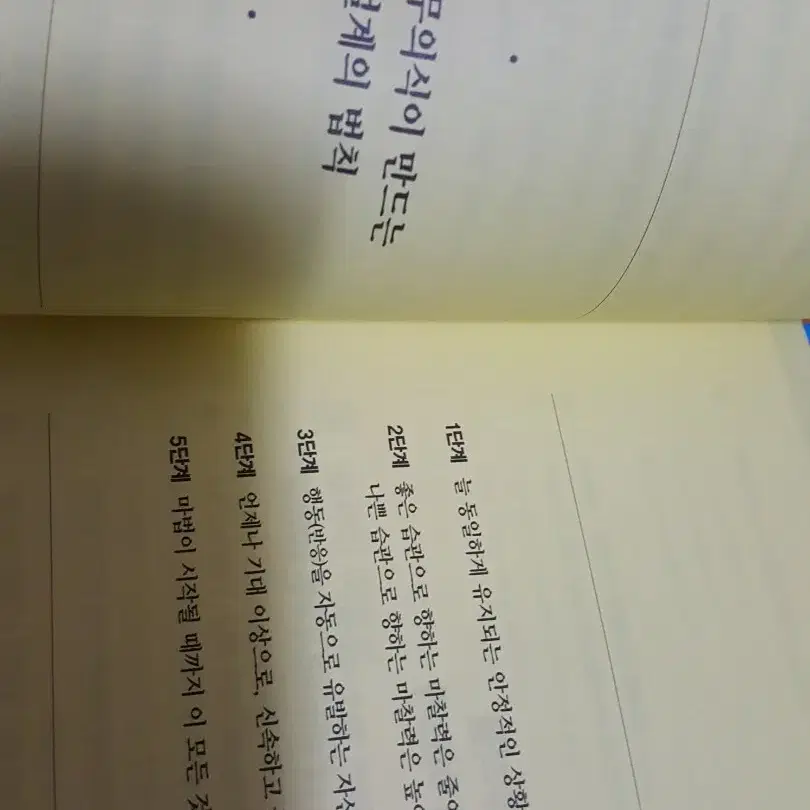 무의식이 만드는
설계의 법칙
1단계 늘 동일하게 유지되는 안정적인 상황
2단계 좋은 습관으로 향하는 마찰력은
나쁜 습관으로 향하는 마찰력은
3단계 행동(반응)을 자동으로 유발하는
4단계 언제나 기대 이상으로, 신속하고
5단계 마법이 시작될 때까지 이 모든